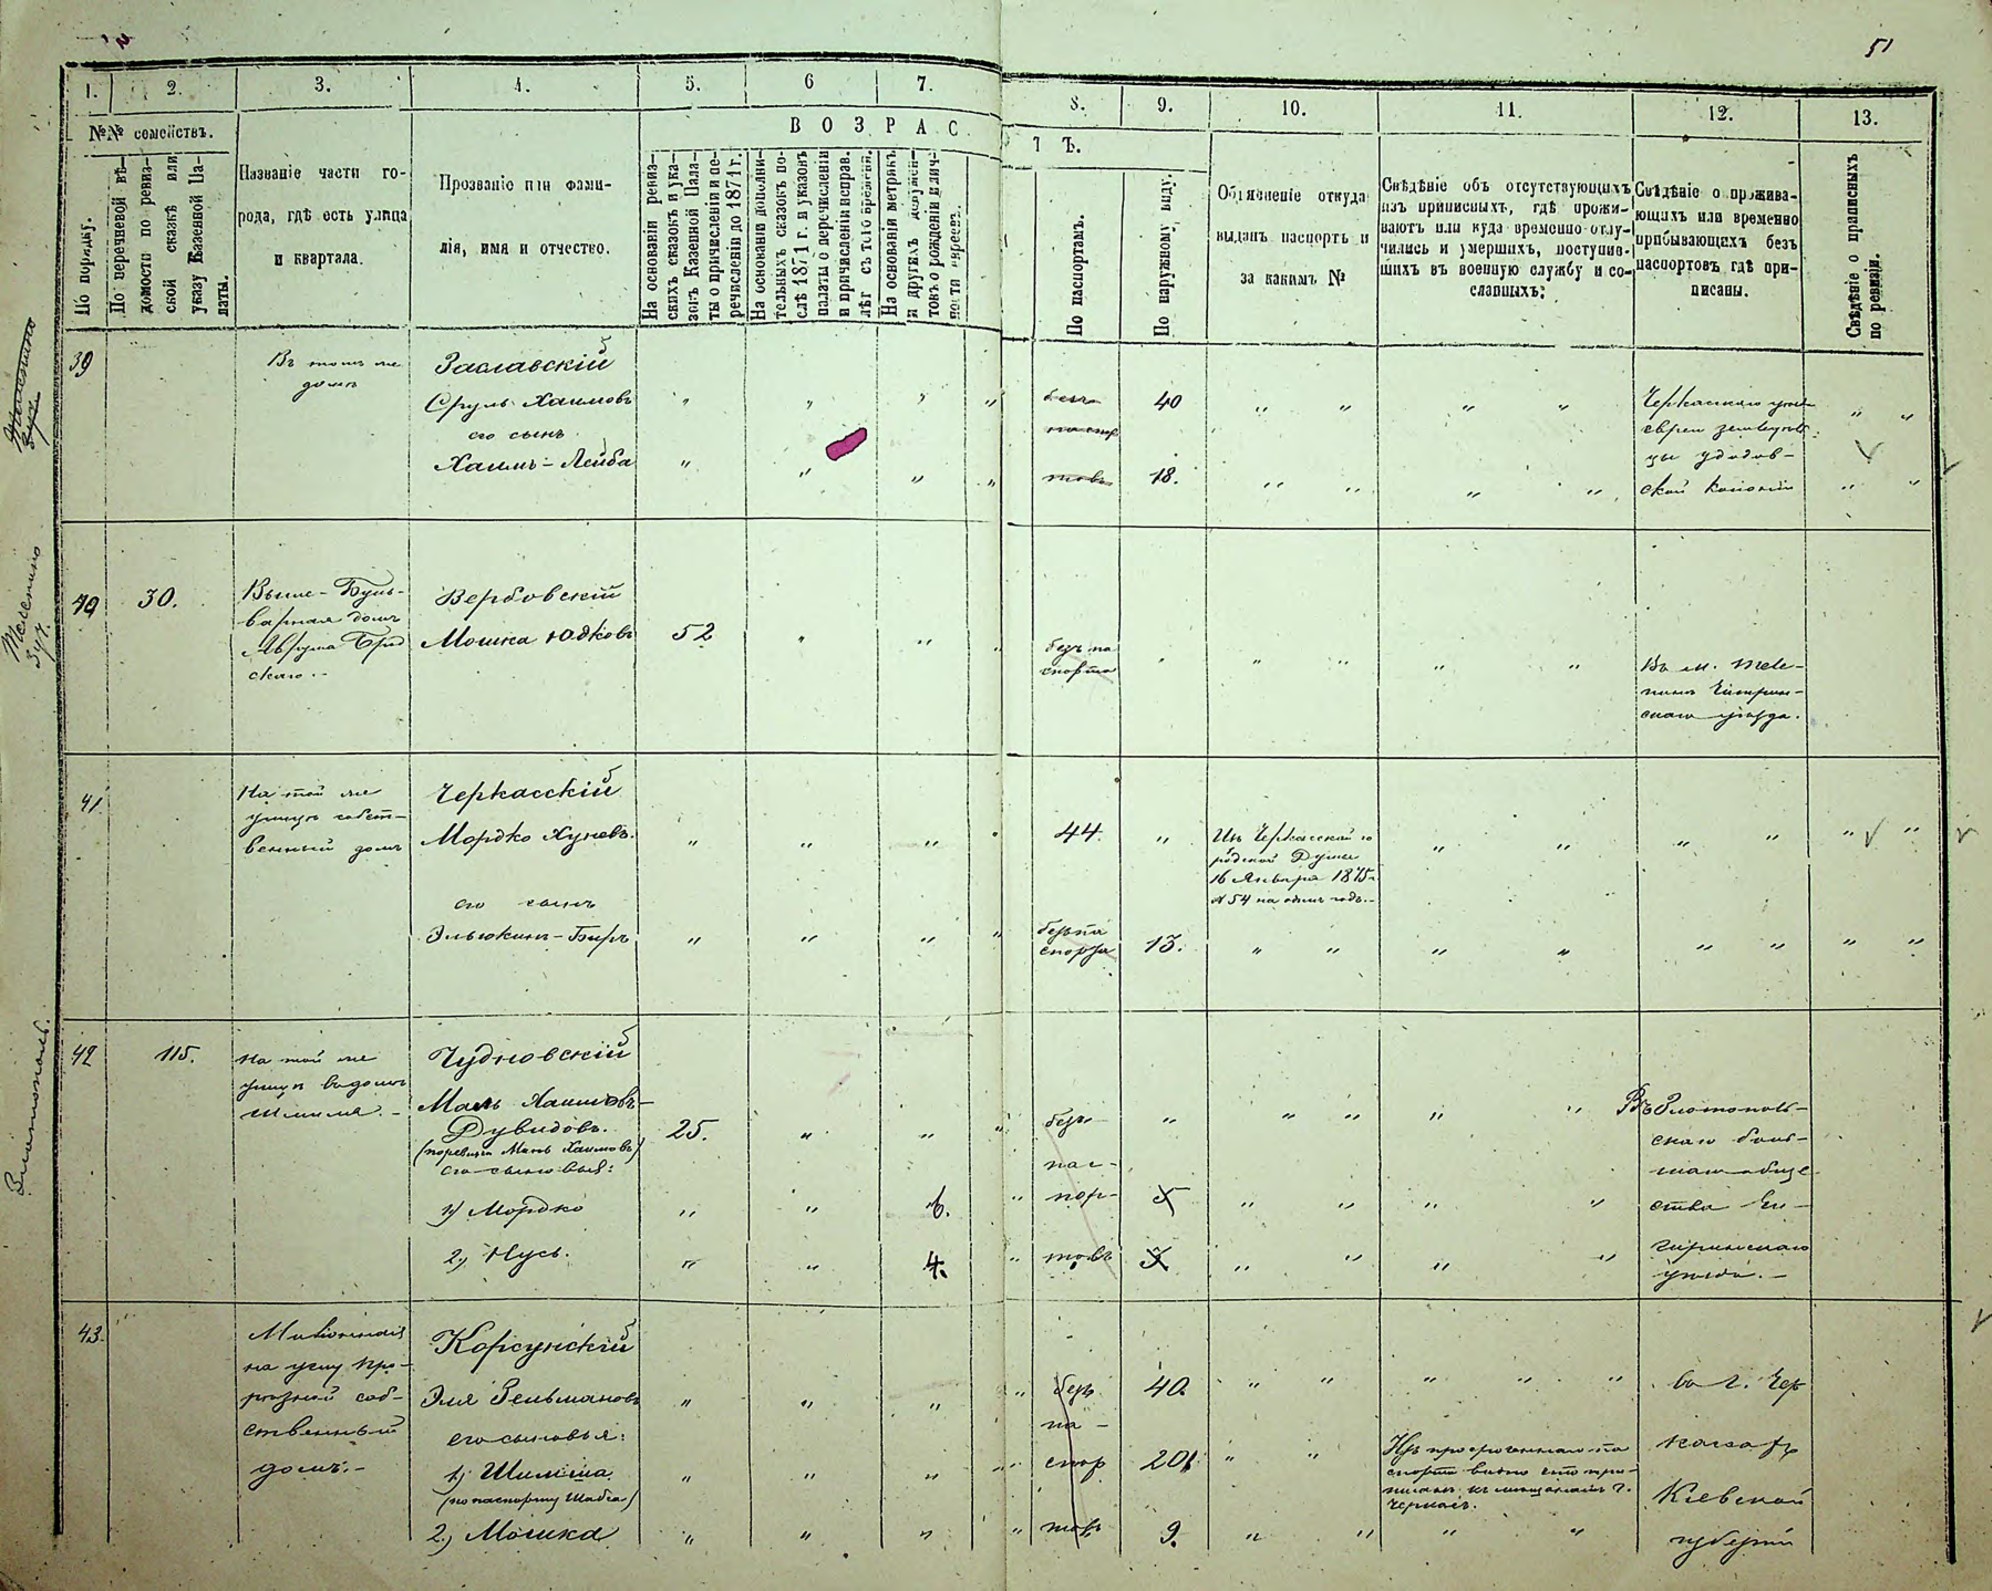 51
1. 2. 3. 4. 5. 6 7. 8. 9. 10. 11. 12. 13.
№№ семействъ.
По порядку.
По перечневой вѣ-
домости по ревиз-
ской сказкѣ или
указу Казенной Па-
латы.
Названіе части го-
рода, гдѣ есть улица
и квартала.
Прозваніе или фами-
лія, имя и отчество.
ВОЗРАС
ТЪ.
На основаніи ревиз-
скихъ сказокъ и ука-
зовъ Казенной Пала-
ты о причисленіи и пе-
речисленіи до 1871 г.
На основаніи дополни-
тельныхъ сказокъ по-
слѣ 1871 г. и указовъ
палаты о перечисленіи
и причисленіи исправ.
лѣт съ того времени.
На основаніи метрикъ
и другихъ докумен-
товъ о рожденіи и лич-
ности евреевъ.
По паспортамъ.
По наружному виду.
Объясненіе откуда
выданъ паспортъ и
за какимъ №
Свѣдѣніе объ отсутствующихъ
изъ приписныхъ, гдѣ прожи-
ваютъ или куда временно отлу-
чились и умершихъ, поступив-
шихъ въ военную службу и со-
сланныхъ:
Свѣдѣніе о прожива-
ющихъ или временно
прибывающихъ безъ
паспортовъ гдѣ при-
писаны.
Свѣдѣніе о приписныхъ
по ревизіи.
39
Въ томъ же
домѣ
Заславскій
Сруль Хаимовъ
его сынъ
Хаимъ-Лейба
безъ
паспор
товъ
40
18.
Черкаскаго уѣзда
евреи земледѣль
цы
ской колоніи
40
30.
Выше-Буль-
варная домъ
скаго
Вербовскій
Мошка Юдковъ
52
безъ па
спорта
Въ м. Теле-
пинѣ Чигирин-
скаго уѣзда.
Телепино
41
На той же
улицѣ собст-
венный домъ
Черкасскій
Мордко Хуневъ.
44.
Изъ Черкасской го
родской Думы
16 Января 1875 г.
№ 54 на одинъ годъ.
его сынъ
безъ па
спорта
13.
42
115.
На той же
улицѣ въ домѣ
Чудновскій
Хаимовъ-
Дувидовъ.
25.
его сыновья:
1) Мордко
6.
2) Нусь.
4.
безъ
пас-
пор-
товъ
Въ Златополь-
скаго
обще
ства Чи-
гиринскаго
уѣзда.-
Златополь.
43.
на углу Про-
рѣзной соб-
ственный
домъ.-
Корсунскій
Эля Зельмановъ
его сыновья:
1) Шилиша
(по паспорту Шабса)
2) Мошка
безъ
па-
спор
товъ
40.
20
9.
Изъ просроченнаго па
спорта видно что при-
писанъ къ мѣщанамъ г.
Черкасъ.
въ г. Чер
касахъ
Кіевской
губерніи